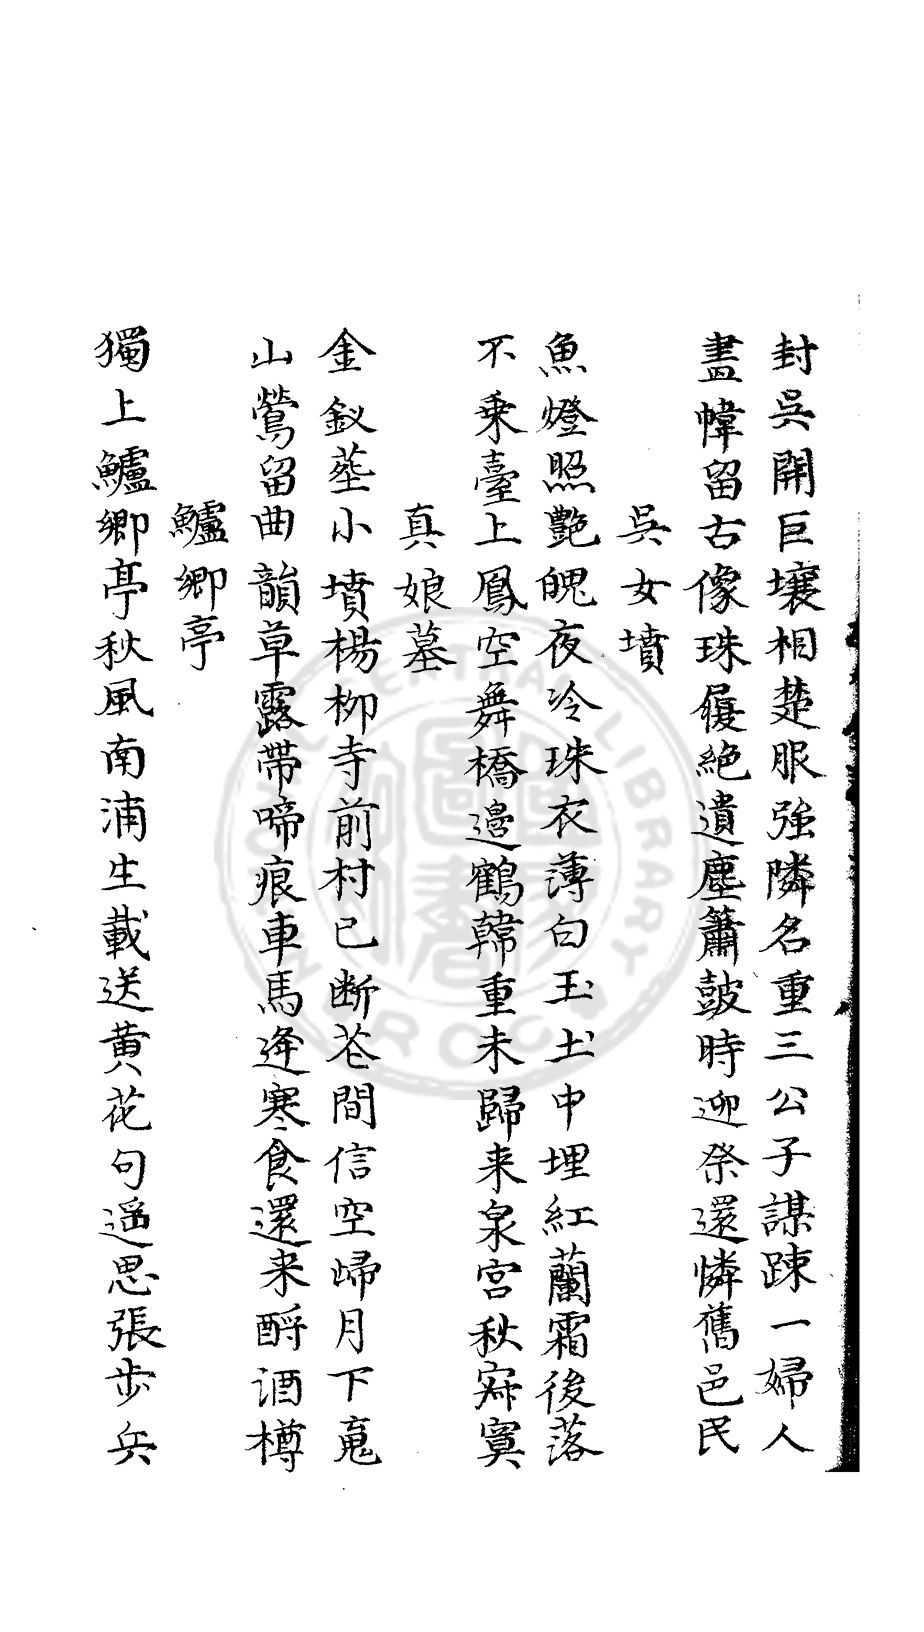 封吳開巨壤相楚服強隣名重三公子謀踈一婦人
畫幃留古像珠履絕遺塵簫鼓時迎祭還憐舊邑民
吳女墳
魚燈照艶魄夜冷珠衣薄白玉土中埋紅蘭霜後落
不乘臺上鳳空舞橋邊鶴韓重未歸来泉宮秋寂寞
真娘墓
金釵葬小墳楊柳寺前村已断花間信空歸月下䰟
山鶯留曲韻草露帶啼痕車馬逢寒食還来酹酒樽
鱸鄉亭
獨上鱸鄉亭秋風南浦生載送黃花句遥思張步兵
NATIONAL CENTRAL LIBRARY R.O.C.